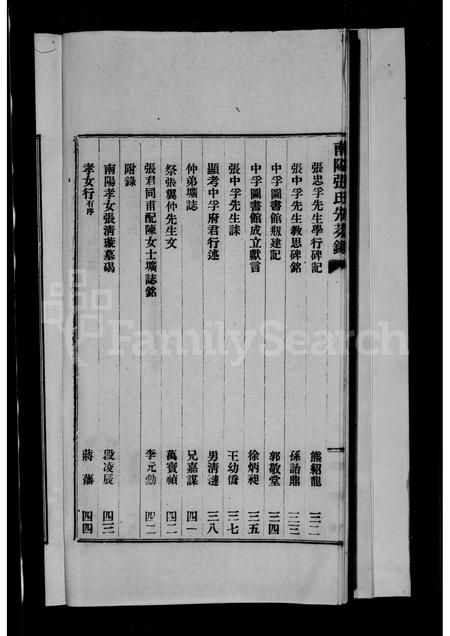 南陽張氏先芬錄
張忠孚先生學行碑記 熊紹龍 三二
張中孚先生教思碑銘 孫詒鼎 三三
中孚圖書館剏建記 郭敬堂 三四
中孚圖書館成立獻言 徐炳昶 三五
張中孚先生誄 王幼僑 三七
顯考中孚府君行述 男清漣 三八
仲弟壙誌 兄嘉謀 四一
祭張翼仲先生文 萬寶楨 四二
張君同甫配陳女士壙誌銘 李元勳 四二
附錄
南陽孝女張清漪墓碣 段凌辰 四三
孝女行有序 蔣藩 四四
FamilySearch